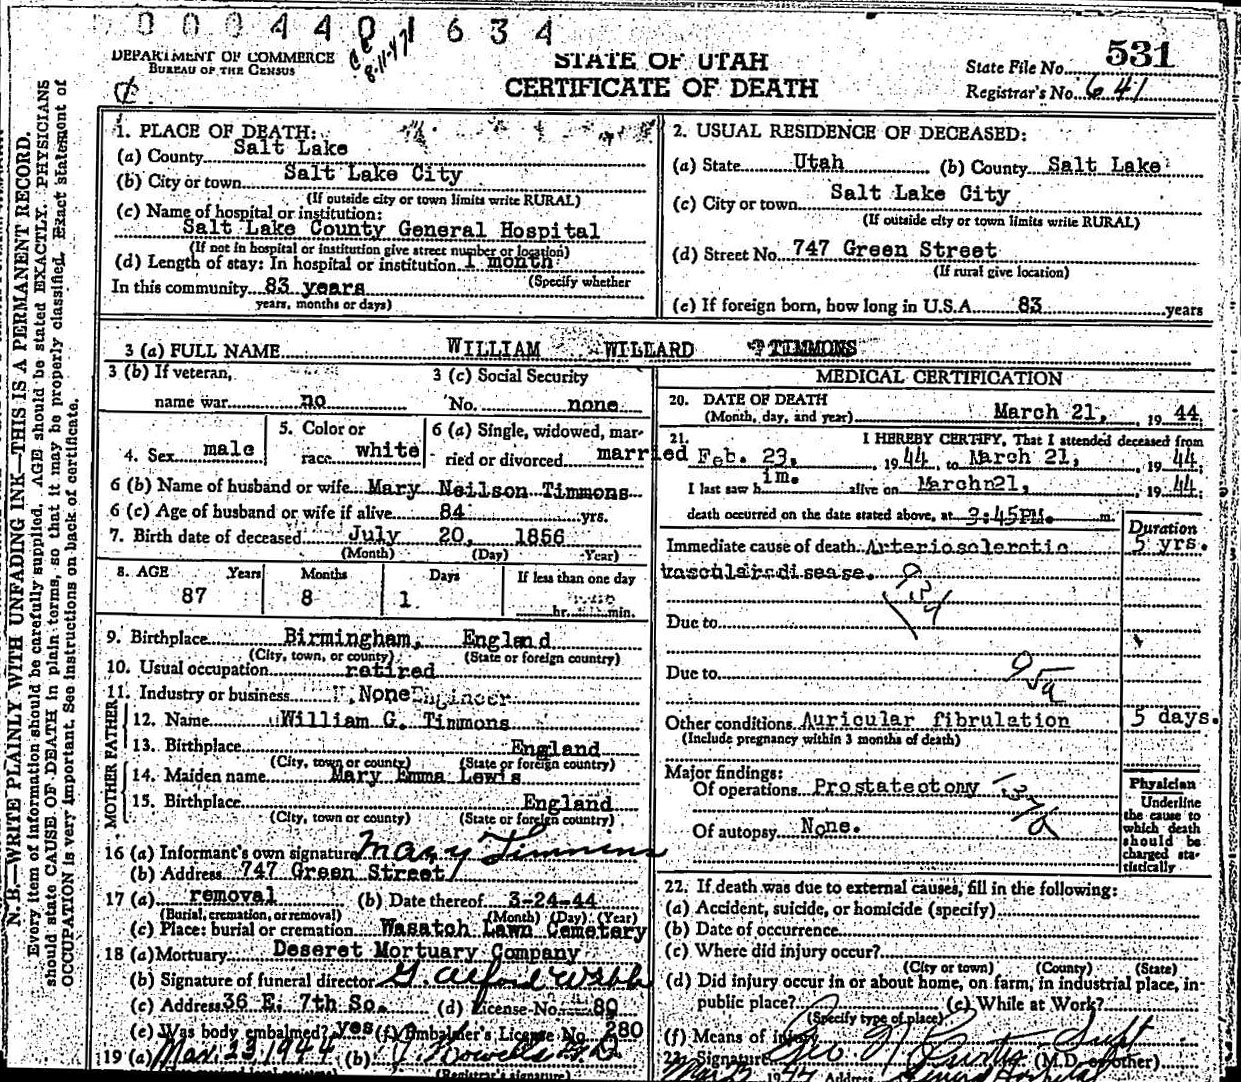 0 0 0 4 4 0 1 6 3 4
8-11-47
DEPARTMENT OF COMMERCE
BUREAU OF THE CENSUS
STATE OF UTAH
CERTIFICATE OF DEATH
State File No. 531
Registrar's No. 641
N. B.—WRITE PLAINLY WITH UNFADING INK—THIS IS A PERMANENT RECORD.
Every item of information should be carefully supplied. AGE should be stated EXACTLY. PHYSICIANS
should state CAUSE OF DEATH in plain terms, so that it may be properly classified. Exact statement of
OCCUPATION is very important. See instructions on back of certificate.
1. PLACE OF DEATH:
(a) County Salt Lake
(b) City or town Salt Lake City
(If outside city or town limits write RURAL)
(c) Name of hospital or institution:
Salt Lake County General Hospital
(If not in hospital or institution give street number or location)
(d) Length of stay: In hospital or institution 1 month
(Specify whether
In this community 83 years
years, months or days)
2. USUAL RESIDENCE OF DECEASED:
(a) State Utah (b) County Salt Lake
(c) City or town Salt Lake City
(If outside city or town limits write RURAL)
(d) Street No. 747 Green Street
(If rural give location)
(e) If foreign born, how long in U.S.A. 83 years
3 (a) FULL NAME WILLIAM WILLARD TIMMONS
3 (b) If veteran, name war no
3 (c) Social Security No. none
4. Sex male
5. Color or race white
6 (a) Single, widowed, married or divorced married
6 (b) Name of husband or wife Mary Neilson Timmons
6 (c) Age of husband or wife if alive 84 yrs.
7. Birth date of deceased July 20, 1856
(Month) (Day) Year)
8. AGE Years Months Days If less than one day
87 8 1 hr. min.
9. Birthplace Birmingham, England
(City, town, or county) (State or foreign country)
10. Usual occupation retired
11. Industry or business None Engineer
FATHER
12. Name William G. Timmons
13. Birthplace England
(City, town or county) (State or foreign country)
MOTHER
14. Maiden name Mary Emma Lewis
15. Birthplace England
(City, town, or county) (State or foreign country)
16 (a) Informant's own signature Mary Timmins
(b) Address 747 Green Street
17 (a) removal (b) Date thereof 3-24-44
(Burial, cremation, or removal) (Month) (Day) (Year)
(c) Place: burial or cremation Wasatch Lawn Cemetary
18 (a) Mortuary Deseret Mortuary Company
(b) Signature of funeral director G. Alford Webb
(c) Address 36 E. 7th So. (d) License No. 80
(e) Was body embalmed? yes (f) Embalmer's License No. 280
19 (a) Mar. 23, 1944 (b)
(Registrar's signature)
MEDICAL CERTIFICATION
20. DATE OF DEATH
(Month, day, and year) March 21, 1944
21. I HEREBY CERTIFY, That I attended deceased from
Feb. 23, 1944, to March 21, 1944;
I last saw him alive on March 21, 1944;
death occurred on the date stated above, at 3:45PM. m.
Duration
Immediate cause of death Arteriosclerotic 5 yrs.
vascular disease.
Due to
Due to
95a
Other conditions Auricular fibrulation 5 days.
(Include pregnancy within 3 months of death)
Major findings:
Of operations Prostatectomy
Of autopsy None.
137a
Physician
Underline
the cause to
which death
should be
charged sta-
tistically
22. If death was due to external causes, fill in the following:
(a) Accident, suicide, or homicide (specify)
(b) Date of occurrence
(c) Where did injury occur?
(City or town) (County) (State)
(d) Did injury occur in or about home, on farm, in industrial place, in
public place? (e) While at Work?
(Specify type of place)
(f) Means of injury
Signature Geo. N. Curtis Supt (M.D. or other)
Address